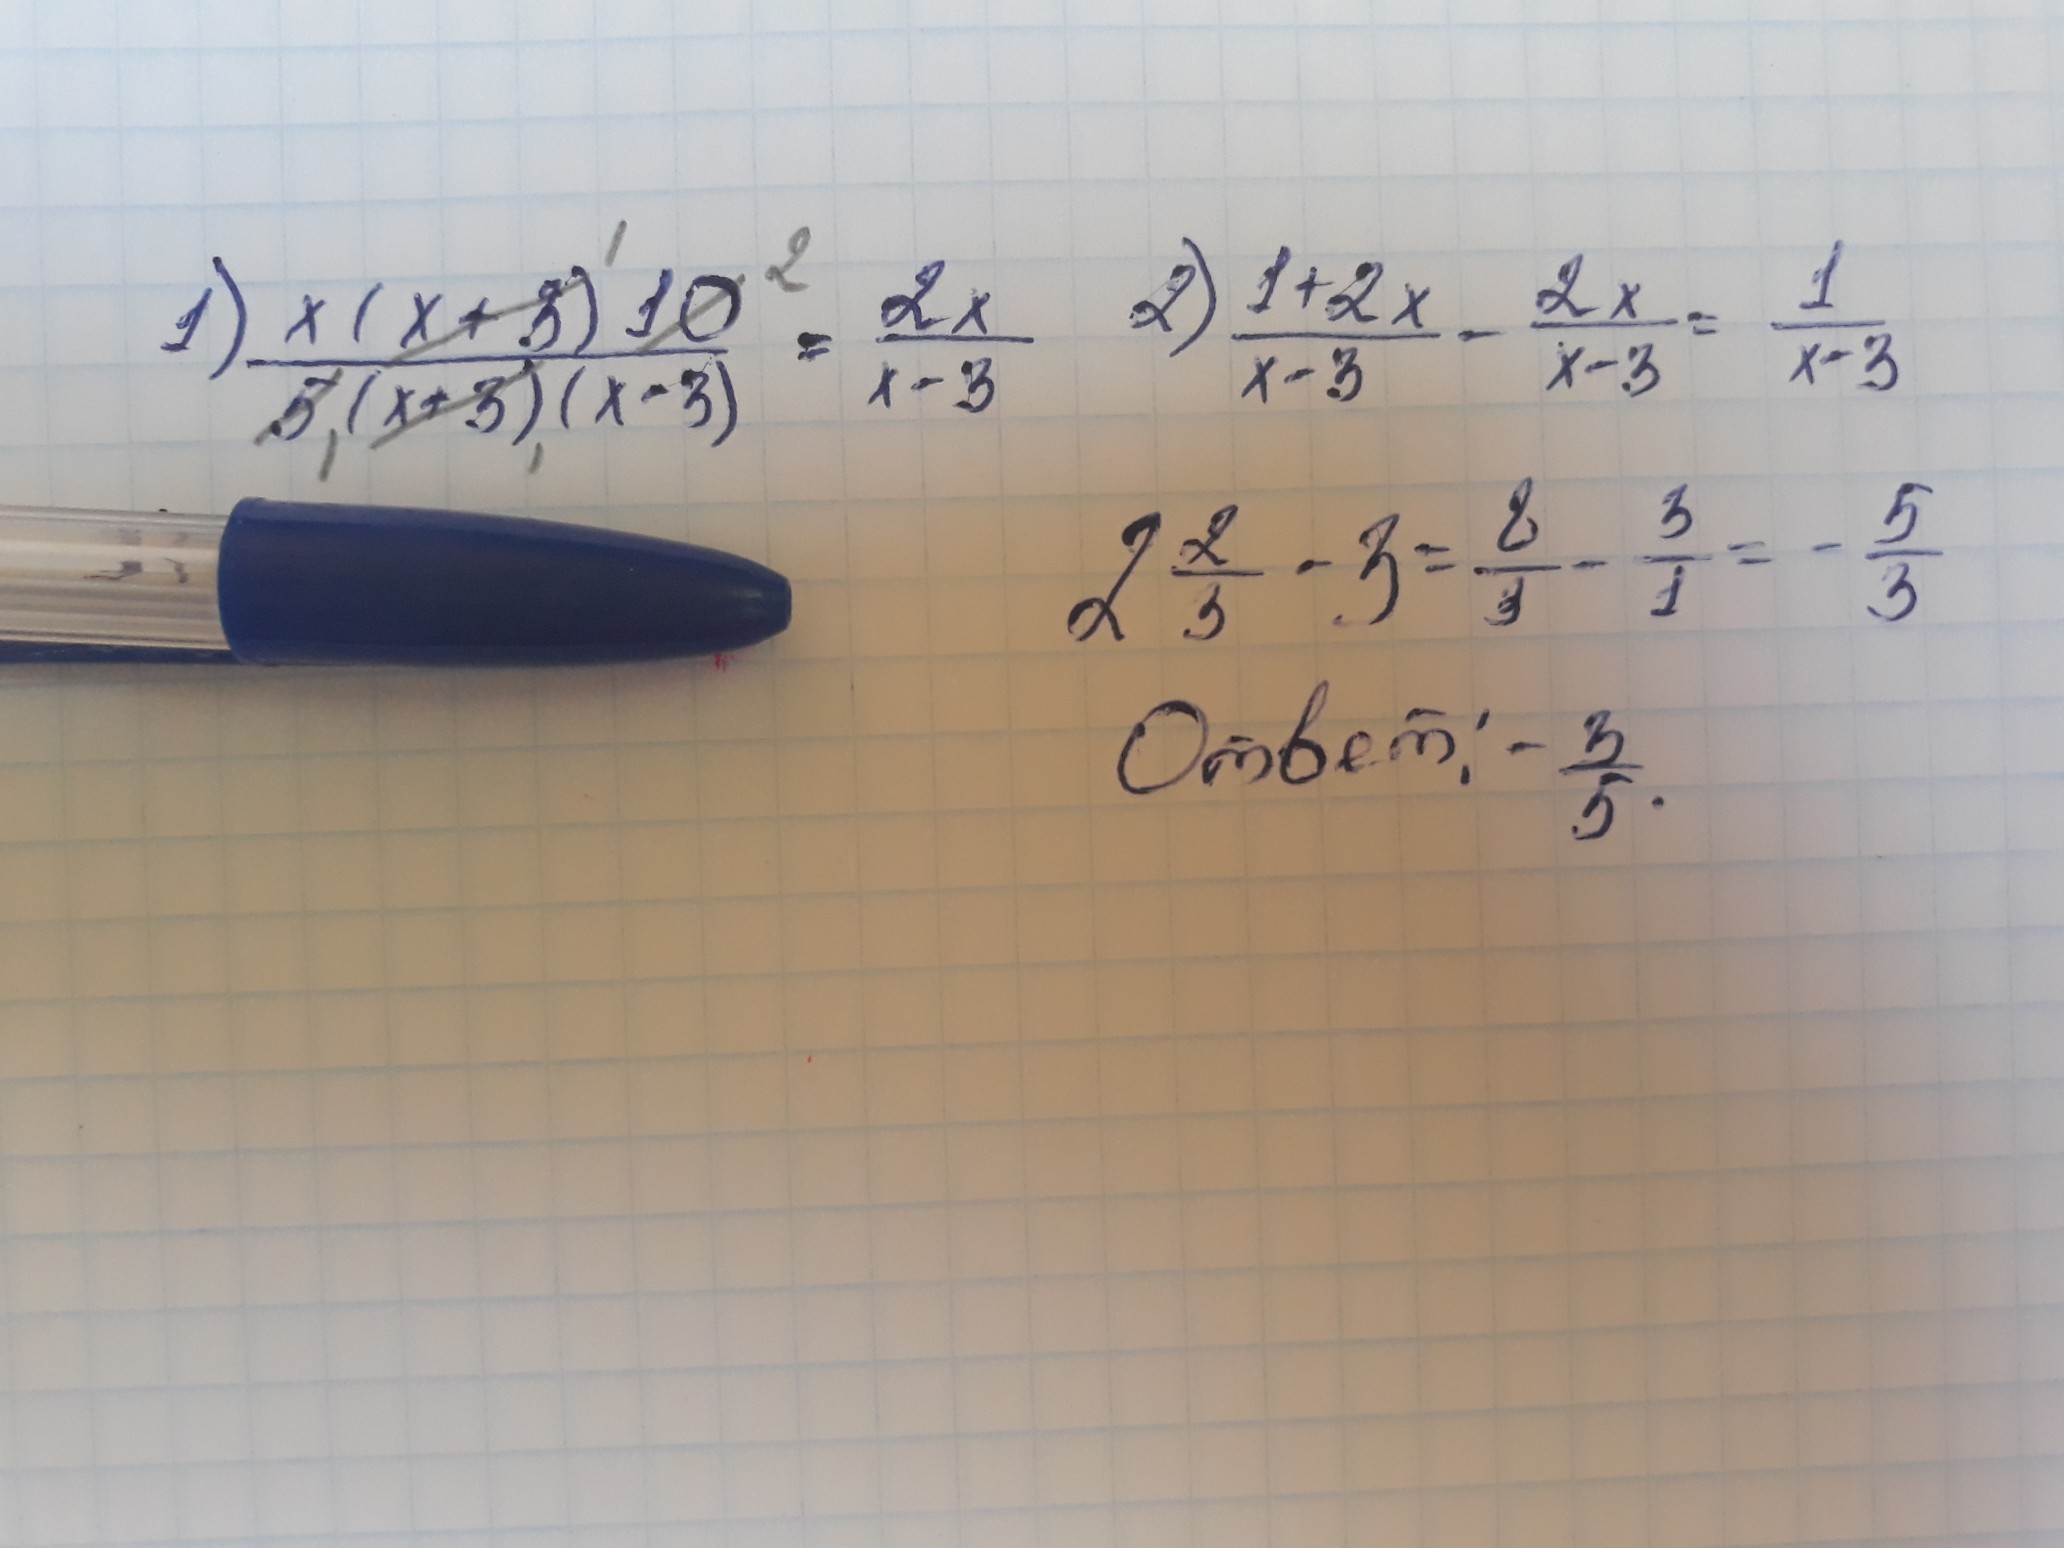 1) x(x+3)10 / 5(x+3)(x-3) = 2x / x-3
1 2
1 1
2) 1+2x / x-3 - 2x / x-3 = 1 / x-3
2 2/3 - 3 = 8/3 - 3/1 = - 5/3
Ответ: - 3/5.